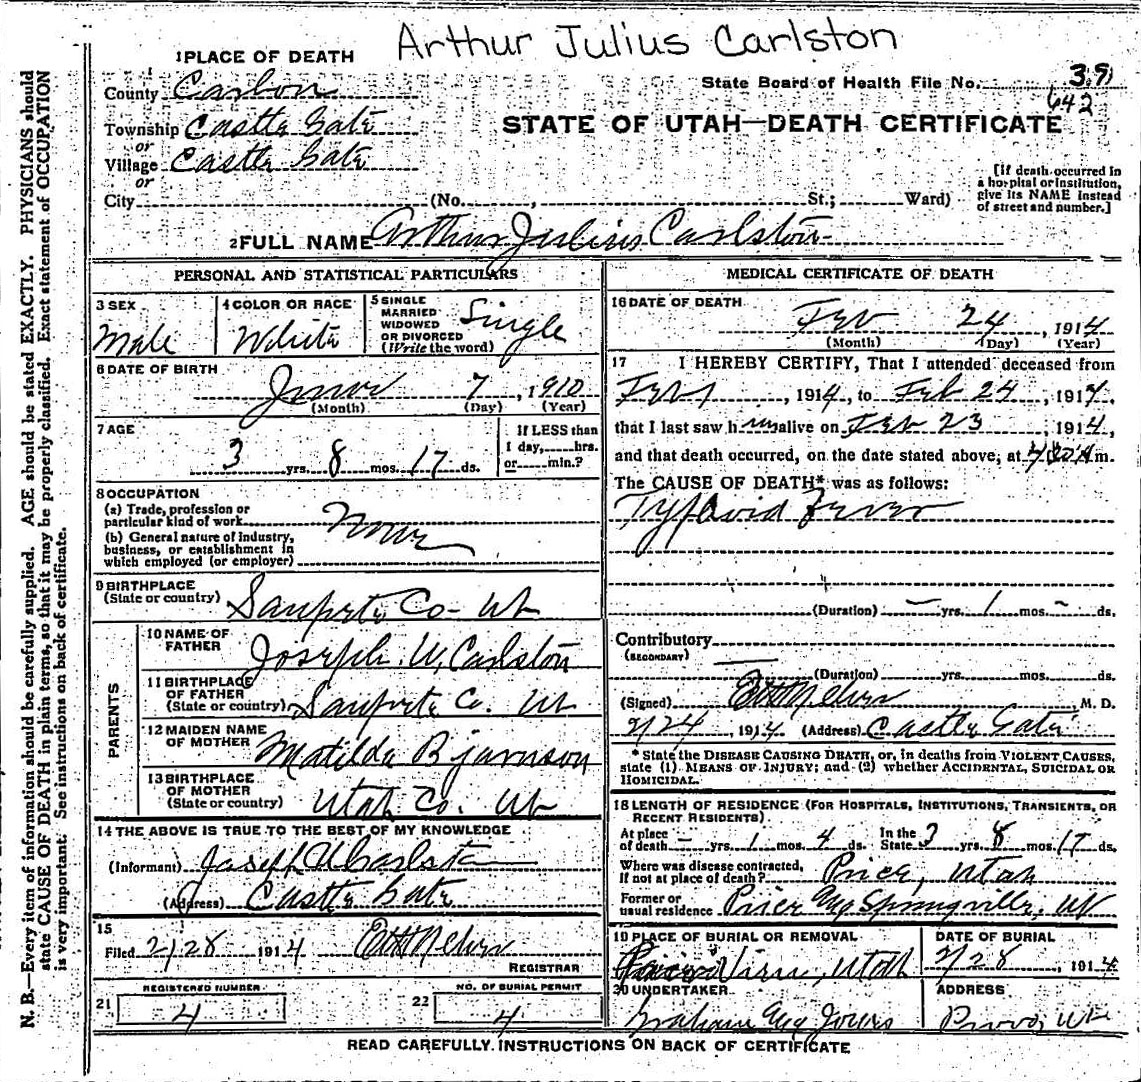 Arthur Julius Carlston
1 PLACE OF DEATH
County Carbon
State Board of Health File No. 39
642
Township Castle Gate
or
STATE OF UTAH—DEATH CERTIFICATE
Village Castle Gate
or
City (No. , St.; Ward)
[If death occurred in
a hospital or institution,
give its NAME instead
of street and number.]
2 FULL NAME Arthur Julius Carlston
PERSONAL AND STATISTICAL PARTICULARS
3 SEX
Male
4 COLOR OR RACE
White
5 SINGLE
MARRIED
WIDOWED
OR DIVORCED
(Write the word)
Single
6 DATE OF BIRTH
7, 1910
(Month) (Day) (Year)
7 AGE
3 yrs. 8 mos. 17 ds.
If LESS than
1 day, hrs.
or min.?
8 OCCUPATION
(a) Trade, profession or
particular kind of work None
(b) General nature of industry,
business, or establishment in
which employed (or employer)
9 BIRTHPLACE
(State or country) Sanpete Co - Ut
PARENTS
10 NAME OF
FATHER Joseph W. Carlston
11 BIRTHPLACE
OF FATHER
(State or country) Sanpete Co. Ut
12 MAIDEN NAME
OF MOTHER Matilda Bjarnson
13 BIRTHPLACE
OF MOTHER
(State or country) Utah Co. Ut
14 THE ABOVE IS TRUE TO THE BEST OF MY KNOWLEDGE
(Informant) Joseph W Carlston
(Address) Castle Gate
15
Filed 2/28 1914
REGISTRAR
21 REGISTERED NUMBER
4
22 NO. OF BURIAL PERMIT
4
MEDICAL CERTIFICATE OF DEATH
16 DATE OF DEATH
Feb 24, 1914
(Month) (Day) (Year)
17 I HEREBY CERTIFY, That I attended deceased from
Feb 1, 1914, to Feb 24, 1914,
that I last saw him alive on Feb 23, 1914,
and that death occurred, on the date stated above, at m.
The CAUSE OF DEATH* was as follows:
Typhoid Fever
(Duration) – yrs. 1 mos. – ds.
Contributory
(SECONDARY)
(Duration) yrs. mos. ds.
(Signed) M. D.
2/24, 1914 (Address) Castle Gate
* State the DISEASE CAUSING DEATH, or, in deaths from VIOLENT CAUSES,
state (1) MEANS OF INJURY; and (2) whether ACCIDENTAL, SUICIDAL OR
HOMICIDAL.
18 LENGTH OF RESIDENCE (FOR HOSPITALS, INSTITUTIONS, TRANSIENTS, OR
RECENT RESIDENTS).
At place
of death – yrs. 1 mos. 4 ds.
In the
State 3 yrs. 8 mos. 17 ds.
Where was disease contracted,
if not at place of death? Price, Utah
Former or
usual residence Price Springville, Ut
19 PLACE OF BURIAL OR REMOVAL
Utah
DATE OF BURIAL
2/28, 1914
20 UNDERTAKER
Graham Jones
ADDRESS
Provo, Ut
READ CAREFULLY INSTRUCTIONS ON BACK OF CERTIFICATE
N. B.—Every item of information should be carefully supplied. AGE should be stated EXACTLY. PHYSICIANS should
state CAUSE OF DEATH in plain terms, so that it may be properly classified. Exact statement of OCCUPATION
is very important. See instructions on back of certificate.